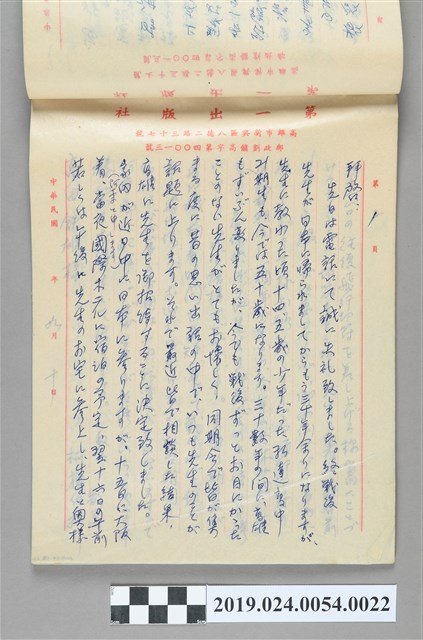 第一出版社
高雄市新興區八德二路三十七號
郵政劃撥儲高字第四００一三號
第 1 頁
拝啓、
先日は電話にて誠に失礼致しました。終戦後
先生が日本に帰られましてからもう三十年余りになりますが、
先生に教わった頃十四五歳の少年だった私達高中
21期生も今では五十歳になります。三十数年の間に高雄
もずいぶん変りましたが、今でも戦後ずっとお目にかかった
ことのない先生がとてもお懐しく、同期会で皆が集
まる度に昔の思い出話の中で、いつも先生のことが
話題に上ります。それで最近皆で相談した結果、
高雄に先生を御招待することに決定致しました。で
家内が近日中に日本に参りますが、十五日に大阪
着、当夜国際ホテルに宿泊の予定、翌十六日の午前
若しくは午後に先生のお宅に参上し、先生と奥様
中華民國 年 九月 十日
2019.024.0054.0022